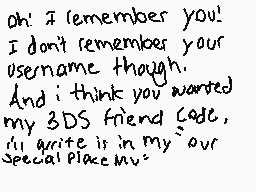 Oh! I remember you!
I don't remember your
username though.
And i think you wanted
my 3DS friend code,
i'll write is in my "our
special place Mv"